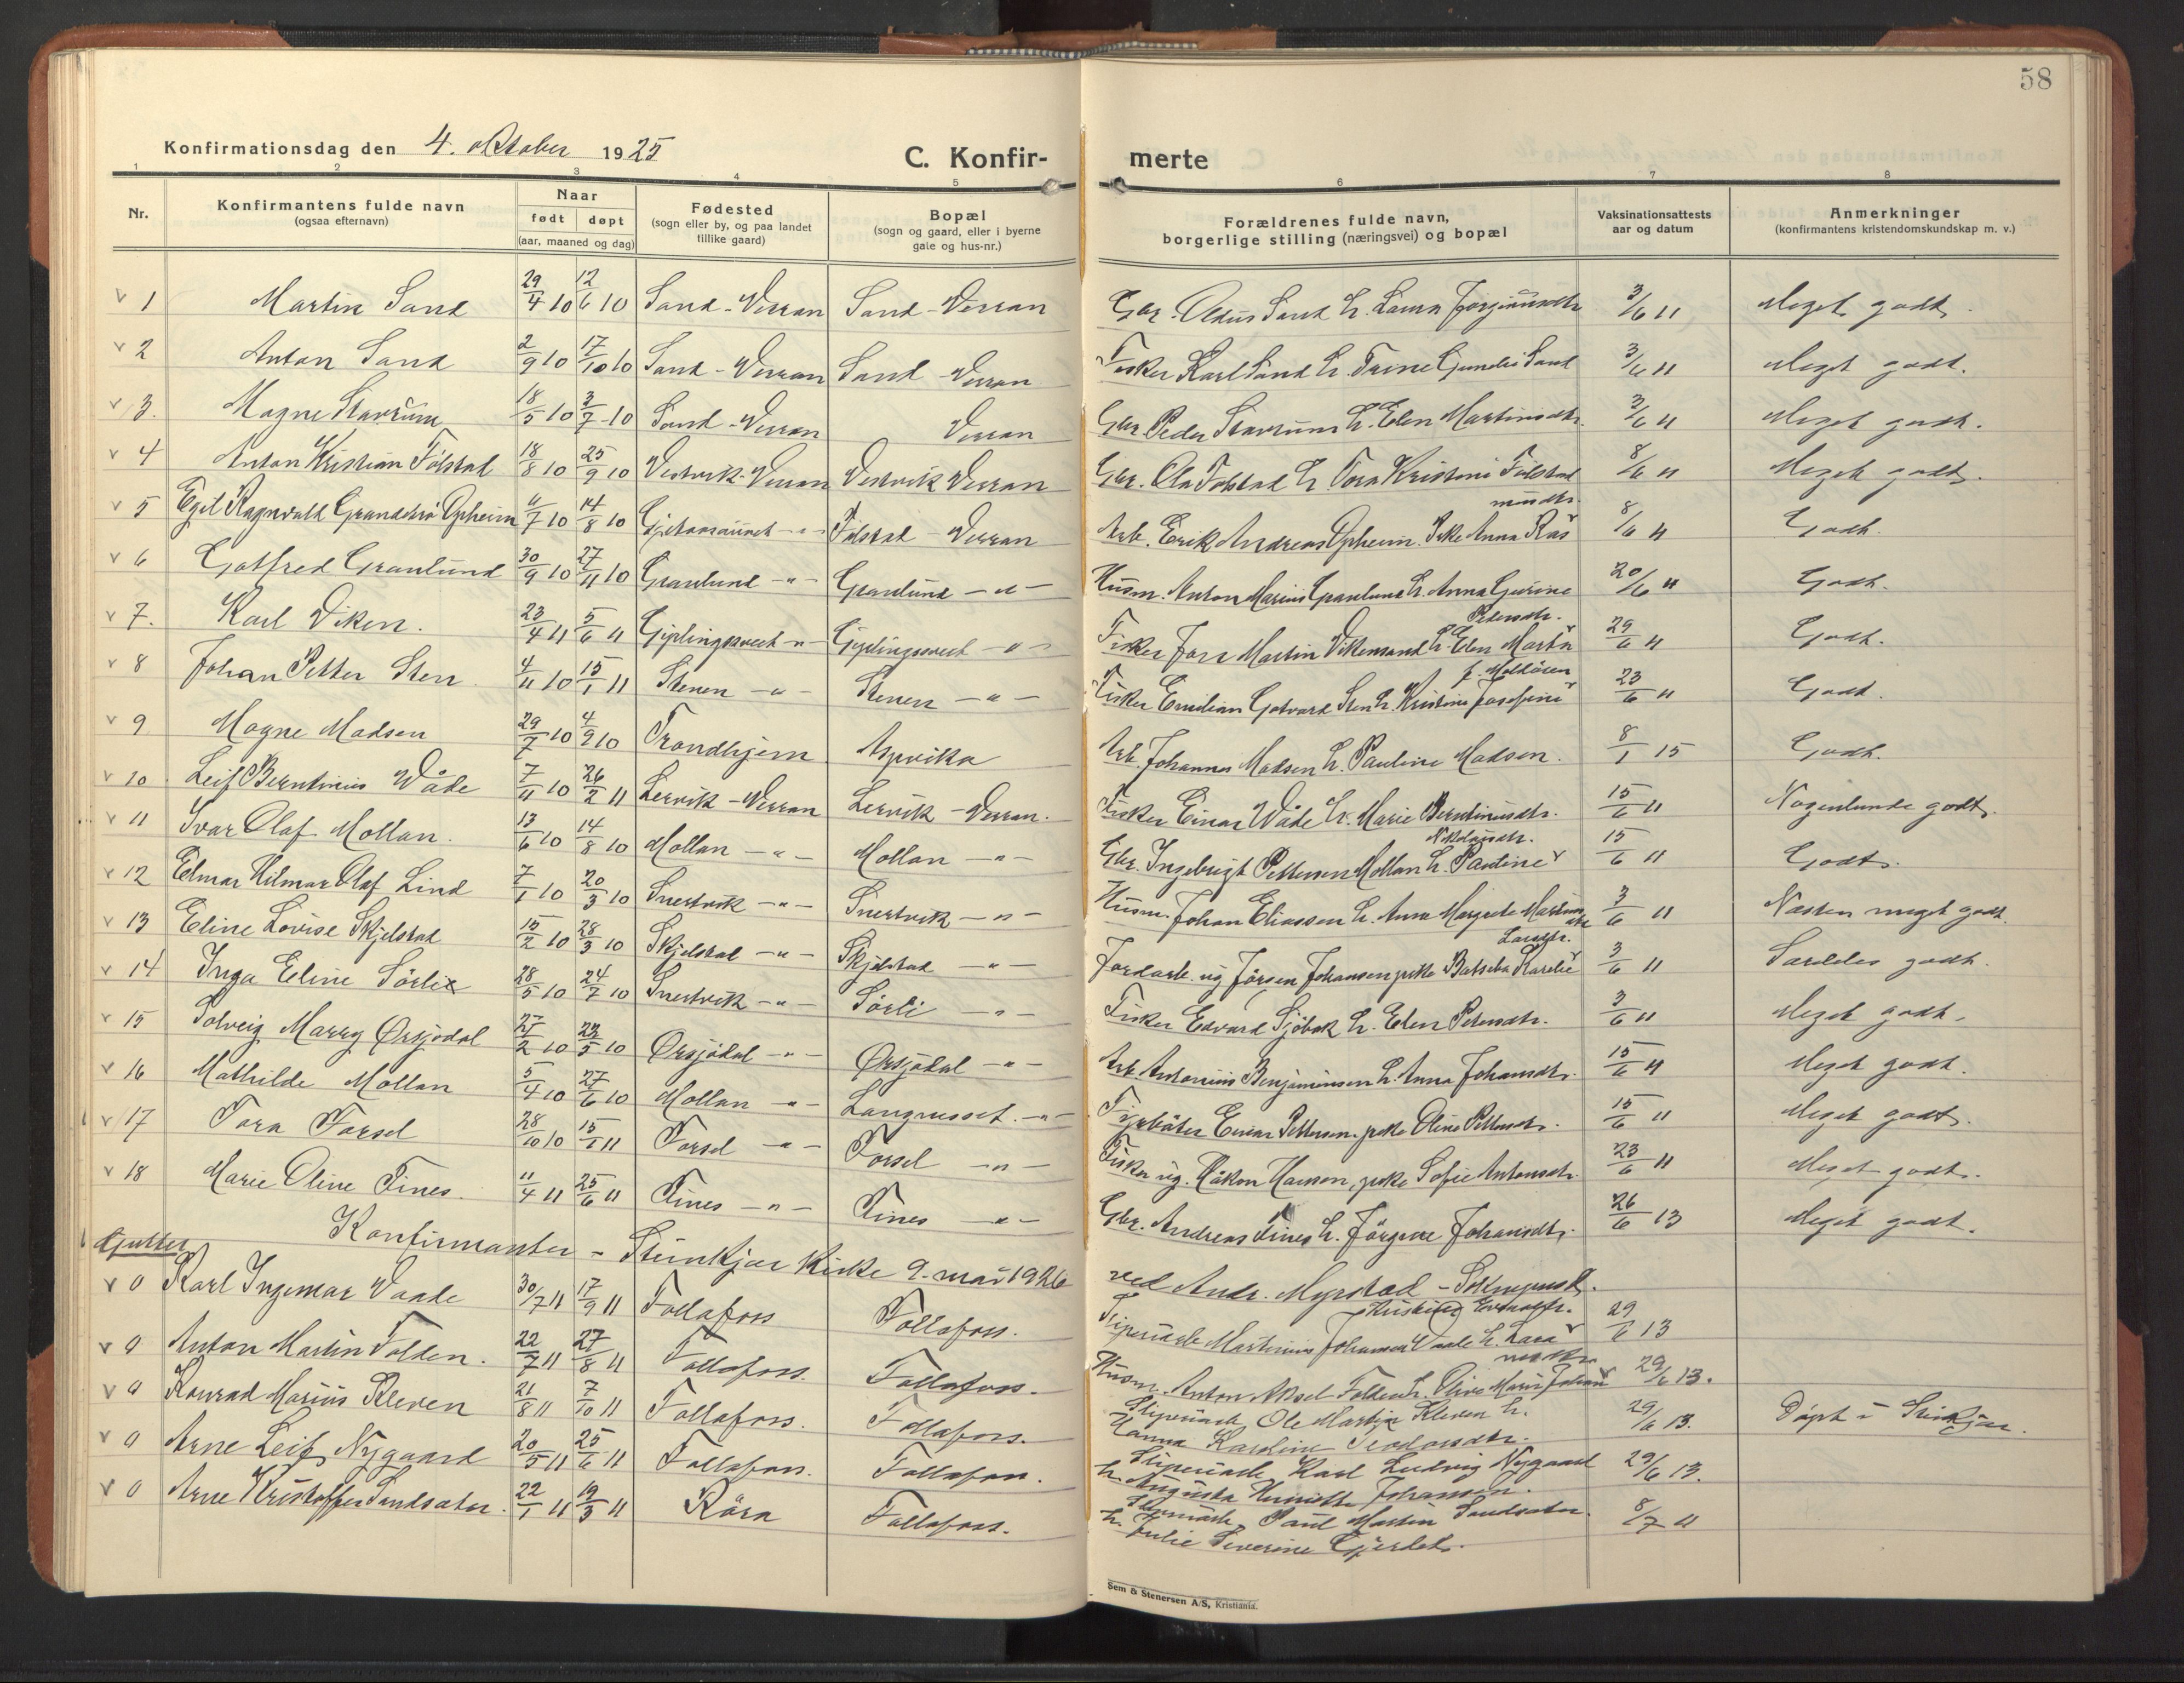 58
Konfirmationsdag den 4. oktober 1925
C. Konfir- merte
1 2 3 4 5 6 7 8
Nr. Konfirmantens fulde navn (ogsaa efternavn) Naar født døpt (aar, maaned og dag) Fødested (sogn eller by, og paa landet tillike gaard) Bopæl (sogn og gaard, eller i byerne gate og hus-nr.) Forældrenes fulde navn, borgerlige stilling (næringsvei) og bopæl Vaksinationsattests aar og datum Anmerkninger (konfirmantens kristendomskundskap m. v.)
v 1 Martin Sand 29/4 10 12/6 10 Sand - Verran Sand - Verran Gbr. Oldus Sand h. Laura 3/6 11 Meget godt.
v 2 Anton Sand 2/9 10 17/10 10 Sand - Verran Sand - Verran Fisker Karl Sand h. Trine Sand 3/6 11 Meget godt.
v 3. Magne Stavrum 18/5 10 3/7 10 Sand - Verran Verran Gbr. Peder Stavrum h. Elen Martinsdtr. 3/6 11 Meget godt.
v 4 Anton Kristian Folstad 18/8 10 25/9 10 Vestvik - Verran Vestvik Verran Gbr. Ola Folstad h. Tora Kristine Folstad 8/6 11 Meget godt.
v 5 Egil Ragnvald Opheim 11/7 10 14/8 10 -"- Folstad - Verran Arb. Erik Andreas Opheim. Pike Anna Ras musdtr. 8/6 11 Godt.
v 6 Gotfred Granlund 30/9 10 27/11 10 Granlund -"- Granlund -"- Husm. Anton Marius Granlund h. Anna Gurine Petersdtr. 20/6 11 Godt.
v 7. Karl Viken. 23/4 11 5/6 11 Gjplingsvedt -"- Gjplingsvedt -"- Fisker Martin h. Elen Marta 29/6 11 Godt.
v 8 Johan Petter Sten 4/11 10 15/1 11 Stenen -"- Stenen -"- Fisker Emilian Gotvard Sten h. Kristine Josefine 23/6 11 Godt.
v 9 Magne Madsen 29/7 10 4/9 10 Trondhjem Aspvika Arb. Johannes Madsen h. Pauline Madsen. 8/1 15 Godt.
v 10 Leif Berntinius Wåde 7/11 10 26/2 11 Lervik - Verran Lervik - Verran. Fisker Einar Wåde h. Marie Berntinusdtr. 15/6 11 Nogenlunde godt.
v 11 Ivar Olaf Mollan. 13/6 10 14/8 10 Mollan -"- Mollan -"- Gbr. Ingebrigt Pettersen Mollan h. Pauline Nikolaisdtr. 15/6 11 Godt.
v 12 Elmar Hilmar Olaf Lind 7/1 10 20/3 10 Snertvik -"- Snertvik -"- Husm. Johan Eliassen h. Anna Margrete Martinsdtr 3/6 11 Næsten meget godt.
v 13 Eline Lovise Skjelstad 15/2 10 28/3 10 Skjelstad -"- Skjelstad -"- Jordarb. ug Jörgen Johansen pike Batseba Karelie Larsdtr. 3/6 11 Særdeles godt.
v 14 Inga Eline Sörli 28/5 10 24/7 10 Snertvik -"- Sörli -"- Fisker Edvard Sjöbak h. Elen Petersdtr. 3/6 11 Meget godt.
v 15 Solveig Marry Ørsjødal 27/2 10 22/5 10 Ørsjødal -"- Ørsjødal -"- Arb. Antonius Benjaminsen h. Anna Johansdtr. 15/6 11 Meget godt.
v 16 Mathilde Mollan 5/4 10 27/6 10 Mollan -"- Langnesset. -"- Fyrböter Einar Pettersen. pike Oline Pettersdtr. 15/6 11 Meget godt.
v 17 Tora Forsel 28/10 10 15/1 11 Forsel -"- Forsel -"- Fisker ug. Håkon Hansen, pike Sofie Antonsdtr. 23/6 11 Meget godt.
v 18 Marie Oline Tines. 11/4 11 25/6 11 Tines -"- Tines -"- Gbr. Andreas Tines h. Jörgine Johansdtr. 26/6 13 Meget godt.
Gutter Konfirmanter - Steinkjær Kirke 9. mai 1926 ved Andr. Myrstad - Sokneprest.
v 0 Karl Ingemar Waade 30/7 11 17/9 11 Follafoss Follafoss. Sliperiarb Martinius Johannes Waade h. Lara 29/6 13
v 0 Anton Martin Folden. 22/7 11 27/8 11 Follafoss. Follafoss. Husm. Anton Aksel Folden h. Oline Marie 29/6 13.
v 0 Konrad Marius Kleven 21/8 11 7/10 11 Follafoss. Follafoss. Sliperiarb. Ole Martin Kleven h. Hanna Karoline Teodorsdtr. 29/6 13. Döpt i Steinkjær.
v 0 Arne Leif Nygaard 20/5 11 25/6 11 Follafoss. Follafoss. Sliperiarb Karl Ludvig Nygaard h. Augusta Henriette Johansen. 29/6 13.
v 0 Arne Kristoffer Sundsæter. 22/1 11 19/3 11 Röra Follafoss. Paul Martin Sundsæter. h. Julie Severine 8/7 11
Sem & Stenersen A/S, Kristiania.